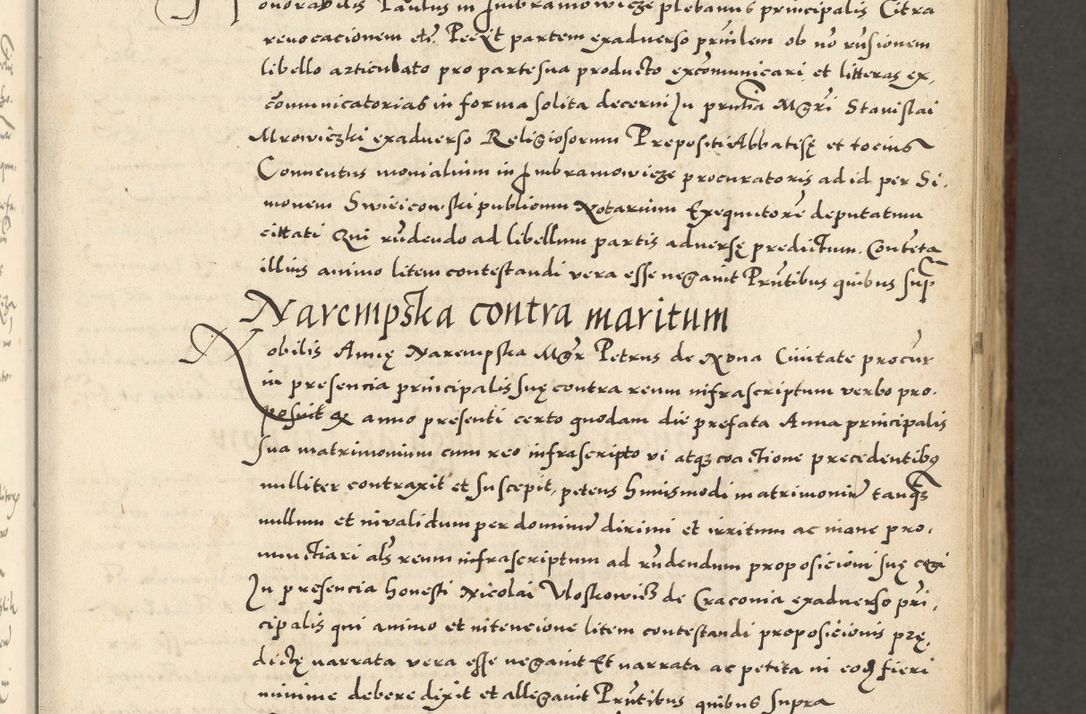 onorabilis Paulus in Imbramowicze plebanus principalis Citra
reuocacionem etc. Petiit partem exaduerso prinlem ob no rusionem
libello articulato pro parte sua producto excomunicari et litteras ex,
comunicatorias in forma solita decerni In prntia Mgri Stanislai
Mrowiczki exaduerso Religiosorum Prepositi Abbatisę et tocius
Conuentus monialium in Imbramowicze procuratoris ad id per Si,
monem Swieicowski publicum Notarium Exequutore deputatum
cittati Qui rudendo ad libellum partis aduersę predictum. Contenta
illius animo litem contestandi vera esse negauit Prntibus quibus sup
Narempska contra maritum
Nobilis Annę Narempska Mgr Petrus de Noua Ciuitate procur
in presencia principalis suę contra reum infrascriptum verbo pro,
posuit q anno presenti certo quodam die prefata Anna principalis
sua matrimonium cum reo infrascripto vi atq coactione precedentibq
nulliter contraxit et suscepit, petens huiusmodi matrimoniu tanq
nullum et inualidum per dominu dirimi et irritum ac inane pro,
nunctiari als reum infrascriptum ad rudendum proposicioni suę cogi
In presencia honesti Nicolai Vloskowicz de Cracouia exaduerso pri,
cipalis qui animo et intencione litem contestandi proposicionis prę,
dictę narrata vera esse negauit Et narrata ac petita in eod fieri
minime debere dixit et allegauit Prntibus quibus supra